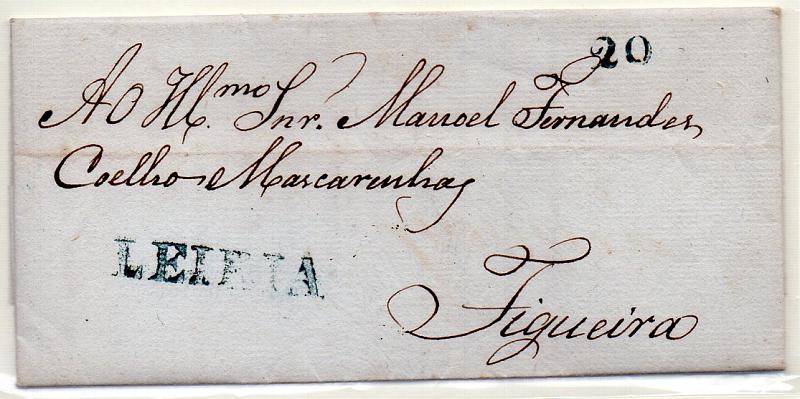 20
AO Illmo. Snr. Manoel Fernandes
Coelho Mascarenhas
LEIRIA
Figueira